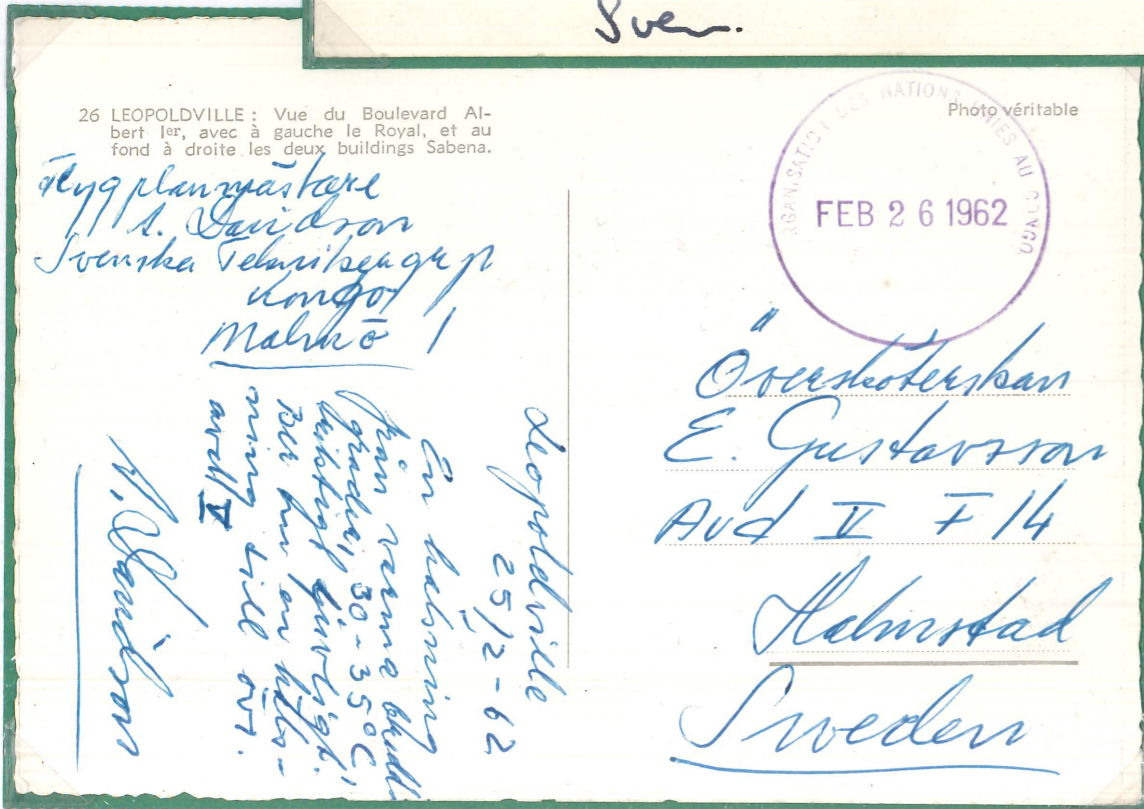 Sven.
26 LEOPOLDVILLE : Vue du Boulevard Al-
bert Ier, avec à gauche le Royal, et au
fond à droite les deux buildings Sabena.
Photo véritable
ORGANISATION DES NATIONS UNIES AU CONGO
FEB 26 1962
Flygplanmästare
A. Davidson
Svenska Teknikergrp
Kongo
Malmö 1
Leopoldville
25/2-62
En hälsning
från varma
grader, 30-35°C,
Ber om en häls-
ning till övr.
avd V
A. Davidson
Översköterskan
E. Gustavsson
Avd V F 14
Halmstad
Sweden